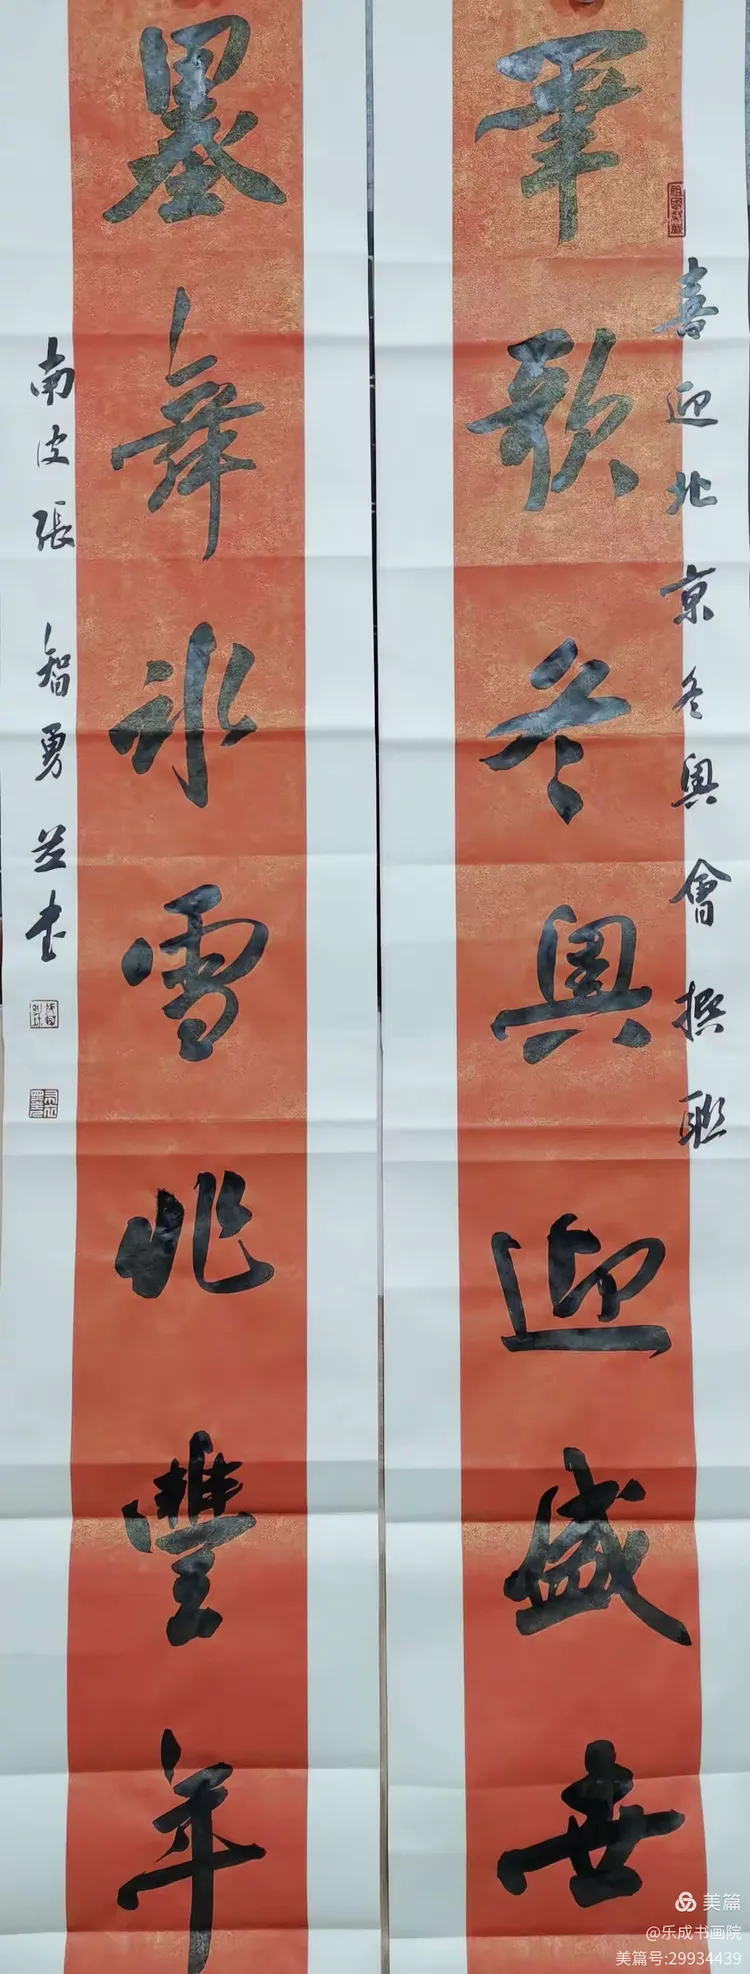 喜迎北京冬奥會撰联
筆歌冬奥迎盛世
墨舞冰雪兆豐年
南皮張智勇并书
美篇
@乐成书画院
美篇号:29934439